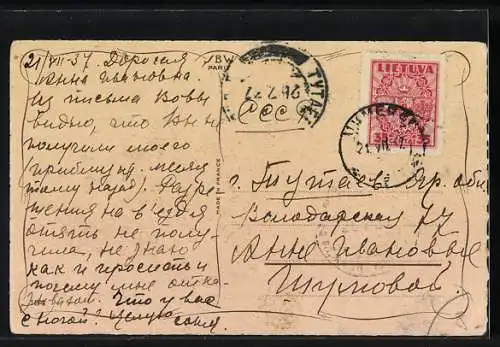 21/VII-37. Дорогая
Анна Ивановна.
Из письма Вовы
вижу, что Вы не
получили моего
письма
месяц
тому назад). Разре-
шения на въезд я
опять не полу-
чила, не знаю
как и просить и
почему мне отка-
зывают. Что у вас
с ногой? Целую
BW
PARIS
MADE IN FRANCE
ТУТАЕВ
26.7.37
СССР
LIETUVA
35
21.VII.37
г. Тутаев Яр. обл.
Володарская 77
Анне Ивановне
Шумовой